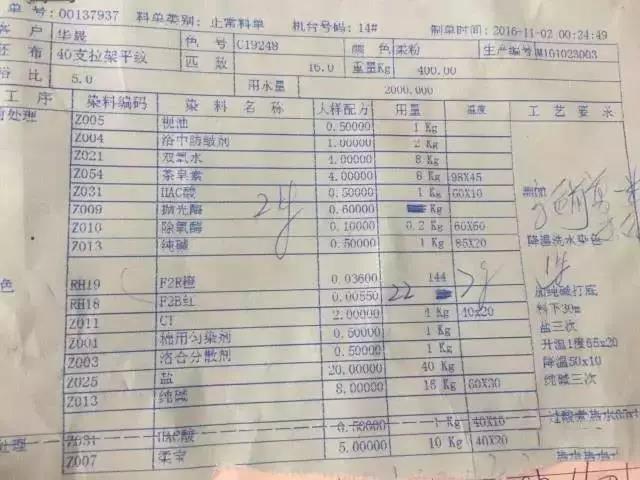 单号：00137937 料单类别：正常料单 机台号码：14# 制单时间：2016-11-02 00:24:49
客户 华晟 色号 C19248 颜色 柔粉 生产编号 M161023003
坯布 40支拉架平纹 匹数 16.0 重量Kg 400.00
浴比 5.0 用水量 2000.000
工序 染料编码 染料名称 大样配方 用量 温度 工艺要求
前处理 Z005 枧油 0.50000 1 Kg
Z004 浴中防皱剂 1.00000 2 Kg
Z021 双氧水 4.00000 8 Kg
Z054 茶皂素 4.00000 8 Kg 98X45
Z031 HAC酸 0.50000 1 Kg 60X10
Z009 抛光酶 0.60000 Kg
Z010 除氧酶 0.10000 0.2 Kg 60X60
Z013 纯碱 0.50000 1 Kg 85X20 降温洗水染色
色 RH19 F2R橙 0.03600 144
RH18 F2B红 0.00550 22 加纯碱打底
Z011 CT 2.00000 4 Kg 40x20 料下30m
Z001 棉用匀染剂 0.50000 1 Kg 盐三次
Z003 螯合分散剂 0.50000 1 Kg 升温1度65x20
Z025 盐 20.00000 40 Kg 降温50x10
Z013 纯碱 8.00000 16 Kg 60X30 纯碱三次
处理 Z031 HAC酸 0.50000 1 Kg 40X10
Z007 柔宝 5.00000 10 Kg 40X20